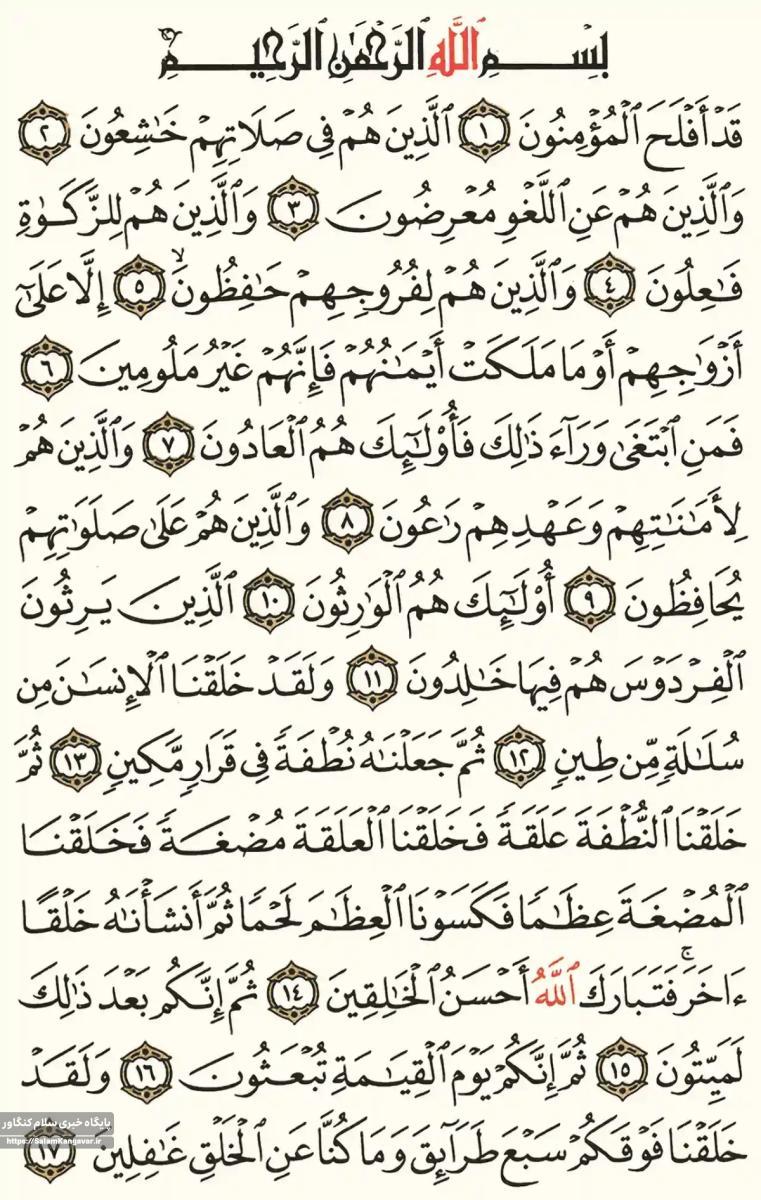 بِسْمِ ٱللَّهِ ٱلرَّحْمَٰنِ ٱلرَّحِيمِ
قَدْ أَفْلَحَ ٱلْمُؤْمِنُونَ ١ ٱلَّذِينَ هُمْ فِي صَلَاتِهِمْ خَٰشِعُونَ ٢
وَٱلَّذِينَ هُمْ عَنِ ٱللَّغْوِ مُعْرِضُونَ ٣ وَٱلَّذِينَ هُمْ لِلزَّكَوٰةِ
فَٰعِلُونَ ٤ وَٱلَّذِينَ هُمْ لِفُرُوجِهِمْ حَٰفِظُونَ ۙ ٥ إِلَّا عَلَىٰٓ
أَزْوَٰجِهِمْ أَوْ مَا مَلَكَتْ أَيْمَٰنُهُمْ فَإِنَّهُمْ غَيْرُ مَلُومِينَ ٦
فَمَنِ ٱبْتَغَىٰ وَرَآءَ ذَٰلِكَ فَأُو۟لَٰٓئِكَ هُمُ ٱلْعَادُونَ ٧ وَٱلَّذِينَ هُمْ
لِأَمَٰنَٰتِهِمْ وَعَهْدِهِمْ رَٰعُونَ ٨ وَٱلَّذِينَ هُمْ عَلَىٰ صَلَوَٰتِهِمْ
يُحَافِظُونَ ٩ أُو۟لَٰٓئِكَ هُمُ ٱلْوَٰرِثُونَ ١٠ ٱلَّذِينَ يَرِثُونَ
ٱلْفِرْدَوْسَ هُمْ فِيهَا خَٰلِدُونَ ١١ وَلَقَدْ خَلَقْنَا ٱلْإِنسَٰنَ مِن
سُلَٰلَةٍ مِّن طِينٍ ١٢ ثُمَّ جَعَلْنَٰهُ نُطْفَةً فِي قَرَارٍ مَّكِينٍ ١٣ ثُمَّ
خَلَقْنَا ٱلنُّطْفَةَ عَلَقَةً فَخَلَقْنَا ٱلْعَلَقَةَ مُضْغَةً فَخَلَقْنَا
ٱلْمُضْغَةَ عِظَٰمًا فَكَسَوْنَا ٱلْعِظَٰمَ لَحْمًا ثُمَّ أَنشَأْنَٰهُ خَلْقًا
ءَاخَرَ ۚ فَتَبَارَكَ ٱللَّهُ أَحْسَنُ ٱلْخَٰلِقِينَ ١٤ ثُمَّ إِنَّكُم بَعْدَ ذَٰلِكَ
لَمَيِّتُونَ ١٥ ثُمَّ إِنَّكُمْ يَوْمَ ٱلْقِيَٰمَةِ تُبْعَثُونَ ١٦ وَلَقَدْ
خَلَقْنَا فَوْقَكُمْ سَبْعَ طَرَآئِقَ وَمَا كُنَّا عَنِ ٱلْخَلْقِ غَٰفِلِينَ ١٧
پایگاه خبری سلام کنگاور
https://SalamKangavar.ir